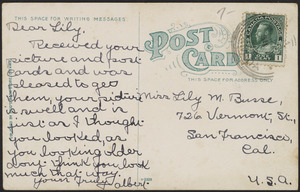 THIS SPACE FOR WRITING MESSAGES
POST CARD
THIS SPACE FOR ADDRESS ONLY
Dear Lily.
Received your
picture and post
cards and was
pleased to get
them, your picture
is swell and is
just as I thought
you looked, as
you looking older
don't think you look
much that way.
yours Truly
Albert.
Miss Lily M. Busse,
726 Vermont, St.,
San Francisco,
Cal.
U.S.A.
1